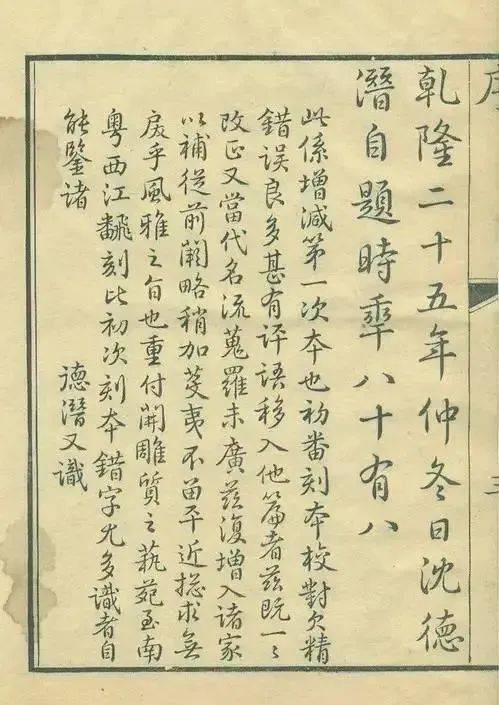 序
三
乾隆二十五年仲冬日沈德
潛自題時秊八十有八
此係增減第一次本也初番刻本校對欠精
錯誤良多甚有評語移入他篇者茲既一〻
改正又當代名流蒐羅未廣茲復增入諸家
以補從前闕略稍加芟夷不留平近揔求無
戾乎風雅之旨也重付開雕質之藝苑至南
粵西江飜刻此初次刻本錯字尤多識者自
能鑒諸
德潛又識